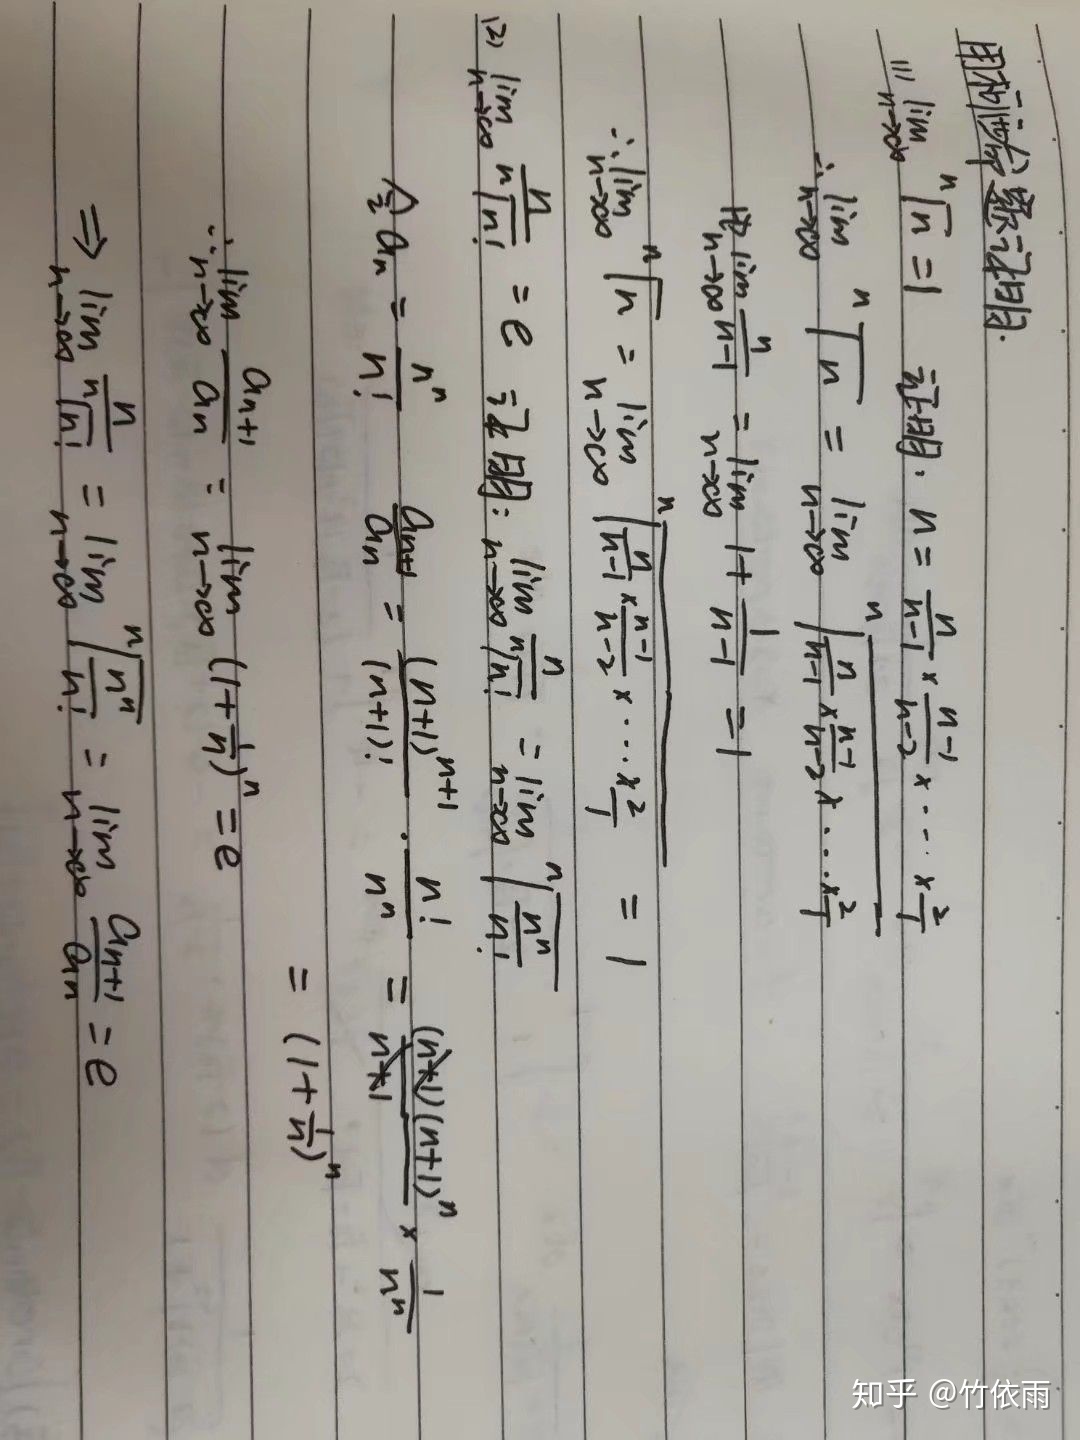 用柯西命题证明.
(1) lim_{n→∞} ⁿ√n = 1 证明. n = n/(n-1) × (n-1)/(n-2) × ···· × 2/1
∴ lim_{n→∞} ⁿ√n = lim_{n→∞} ⁿ√(n/(n-1) × (n-1)/(n-2) × ···· × 2/1)
lim_{n→∞} n/(n-1) = lim_{n→∞} 1 + 1/(n-1) = 1
∴ lim_{n→∞} ⁿ√n = lim_{n→∞} ⁿ√(n/(n-1) × (n-1)/(n-2) × ··· × 2/1) = 1
(2) lim_{n→∞} n/ⁿ√n! = e 证明: lim_{n→∞} n/ⁿ√n! = lim_{n→∞} ⁿ√(nⁿ/n!)
令 a_n = nⁿ/n! a_{n+1}/a_n = (n+1)^{n+1}/(n+1)! · n!/nⁿ = (n+1)(n+1)ⁿ/(n+1) × 1/nⁿ
= (1+1/n)ⁿ
∴ lim_{n→∞} a_{n+1}/a_n = lim_{n→∞} (1+1/n)ⁿ = e
⇒ lim_{n→∞} n/ⁿ√n! = lim_{n→∞} ⁿ√(nⁿ/n!) = lim_{n→∞} a_{n+1}/a_n = e
知乎 @竹依雨